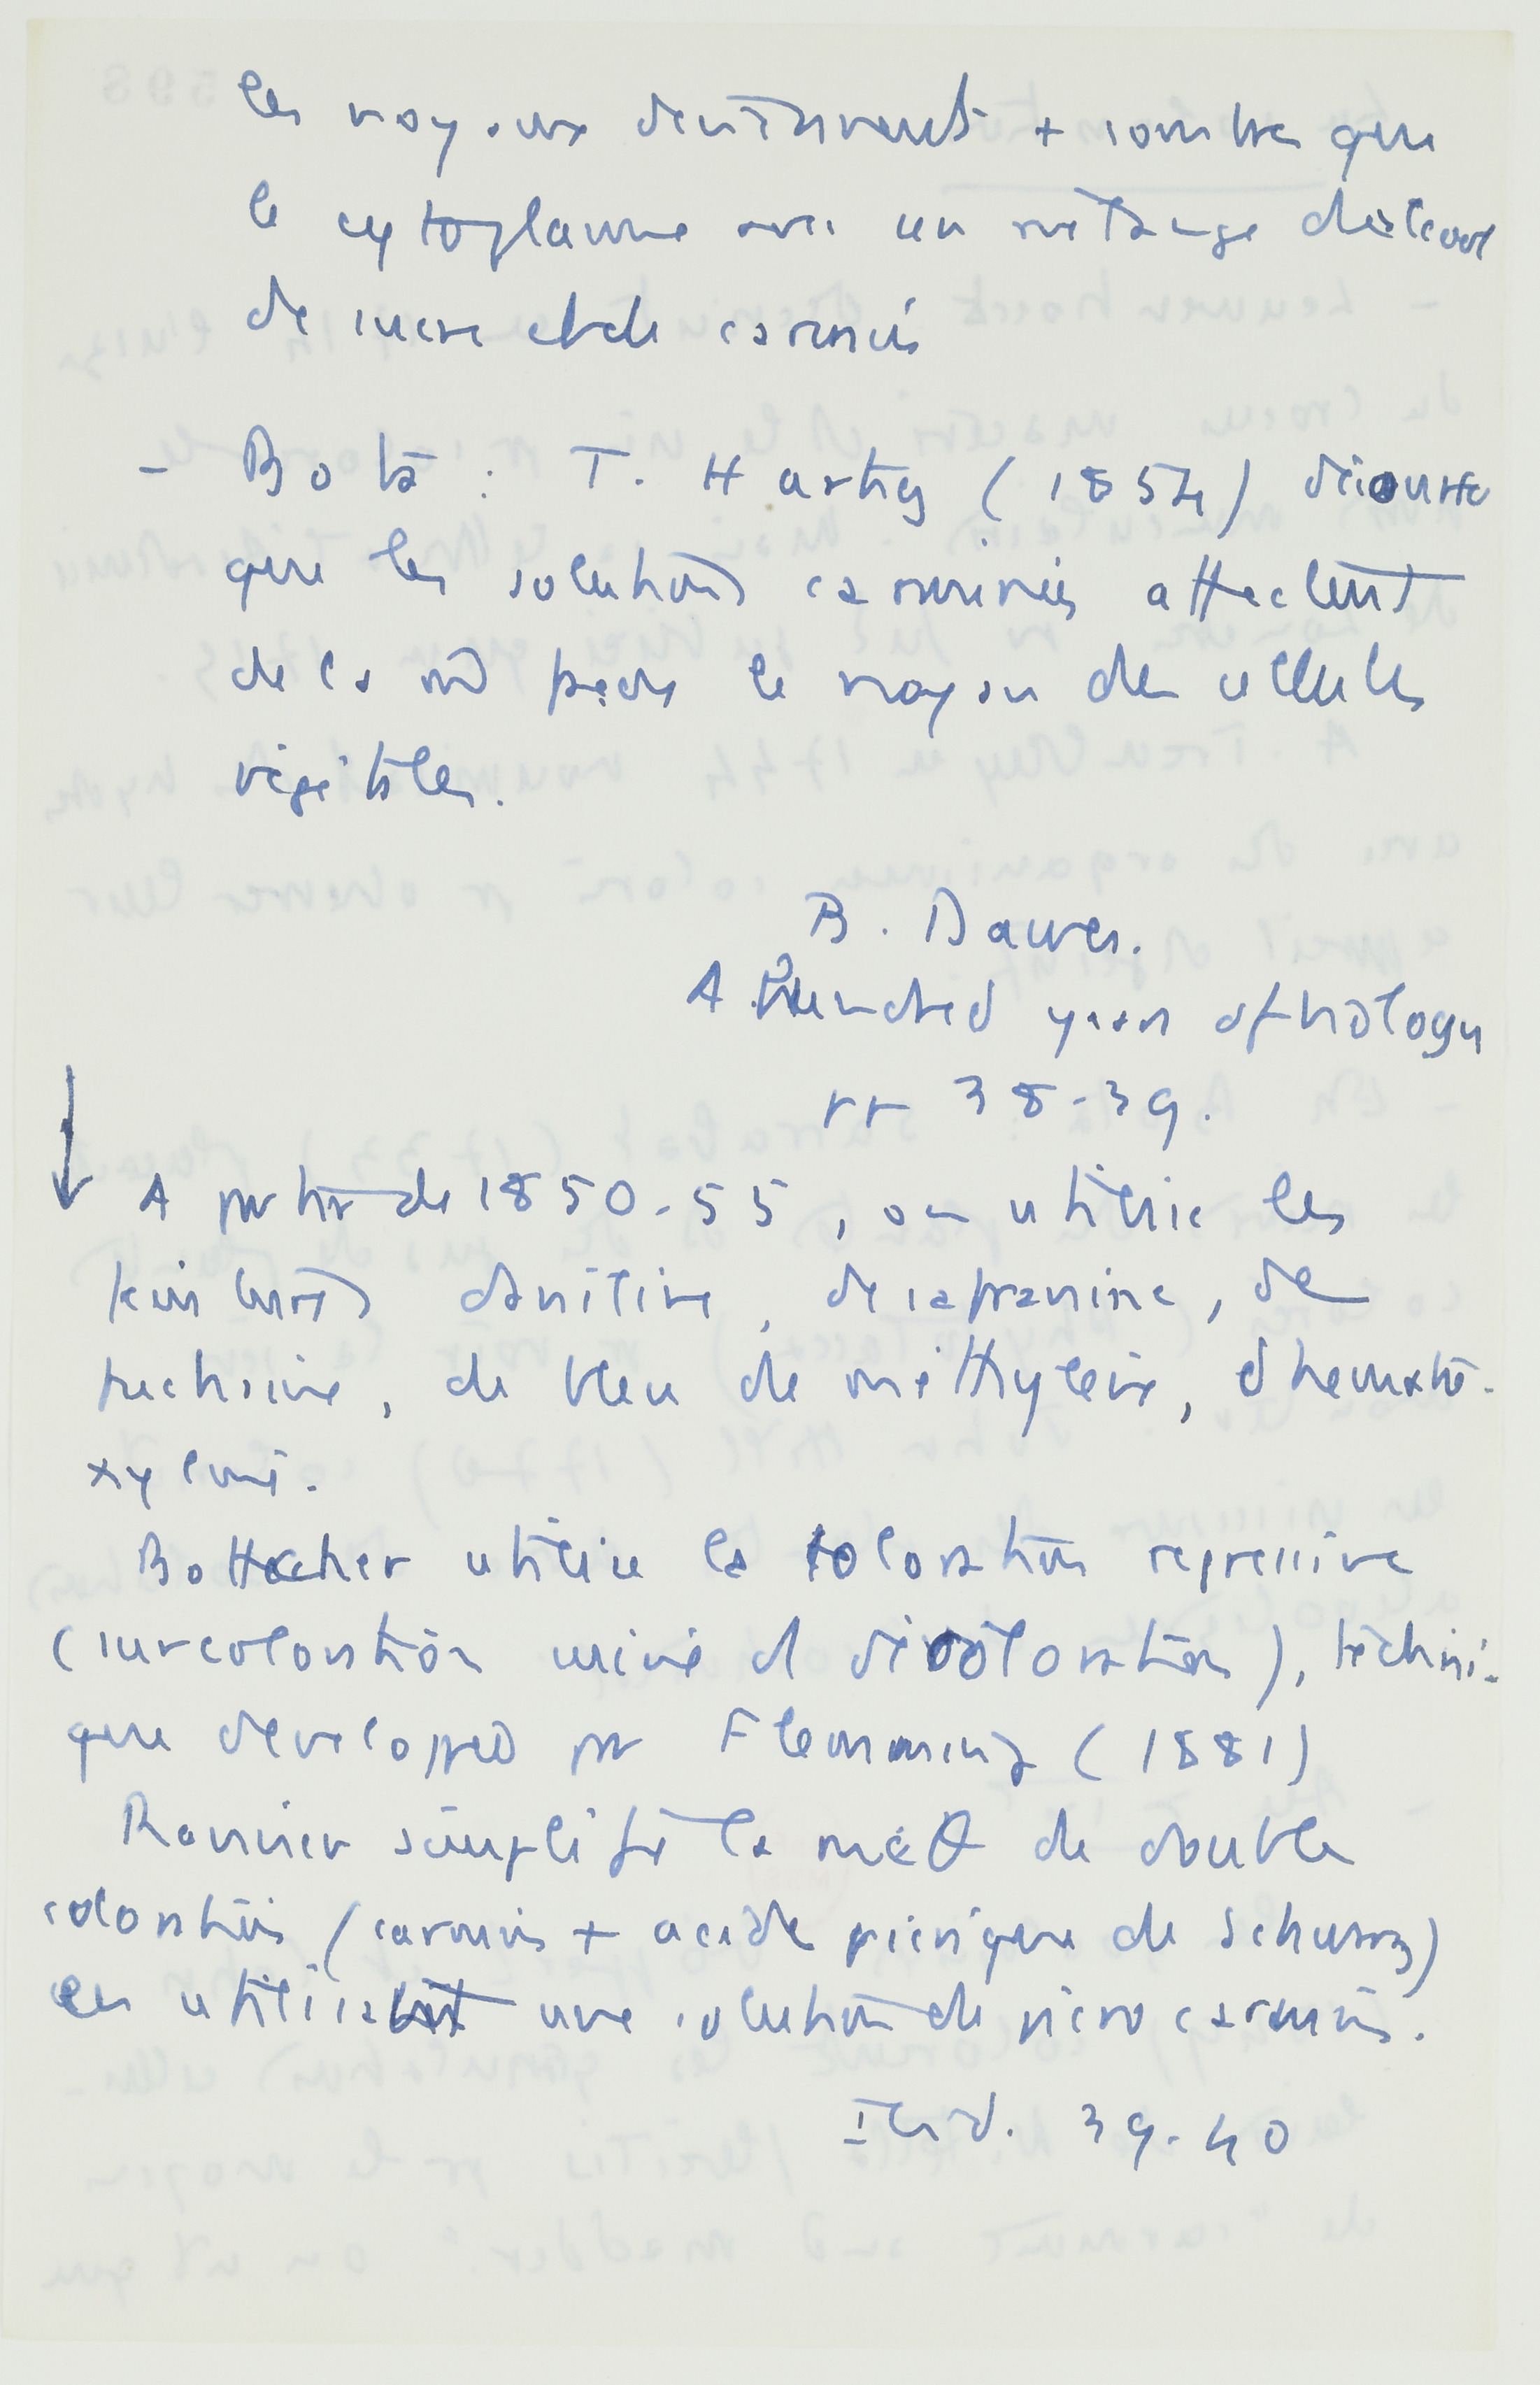 les noyaux deviennent + sombres que
le cytoplasme avec un mélange d'alcool
de sucre et de carmin
- Bota : T. Hartig (1854) découvre
que les solutions carminées affectent
de la m̂ façon le noyau des cellules
végétales.
B. Dawes.
A Hundred years of biology
pp 38-39.
A partir de 1850-55, on utilise les
teintures d'aniline, de safranine, de
fuchsine, de bleu de méthylène, d'hémato-
xyline.
Böttcher utilise la coloration regressive
(surcoloration suivie de décoloration), techni-
que développée par Flemming (1881)
Ranvier simplifie la méθ de double
coloration (carmin + acide picrique de Schwarz)
en utilisant une solution de picro carmin.
Ibid. 39-40